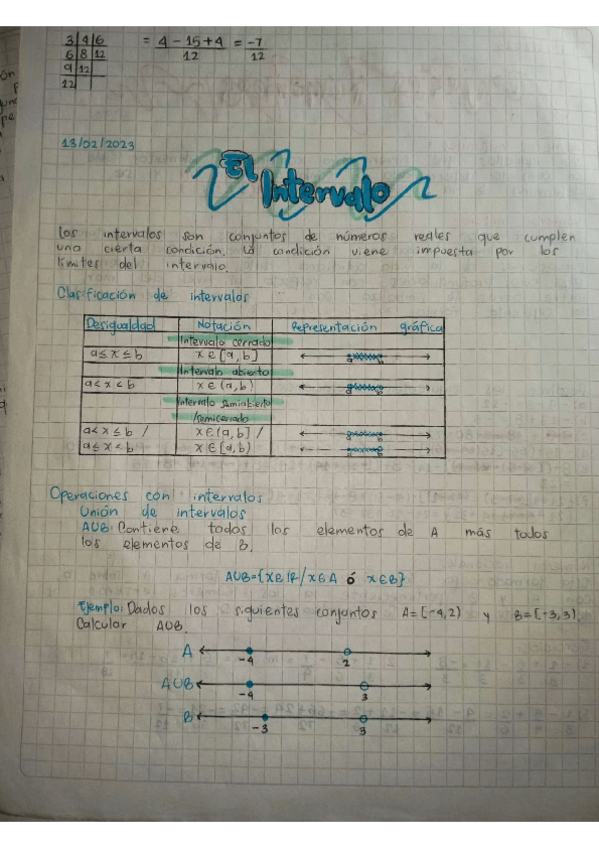 3 4 6
6 8 12
9 12
12
= 4 - 15 + 4 / 12 = -7 / 12
13/02/2023
El Intervalo
Los intervalos son conjuntos de números reales que cumplen
una cierta condición. La condición viene impuesta por los
límites del intervalo.
Clasificación de intervalos
Desigualdad Notación Representación gráfica
Intervalo cerrado
a ≤ x ≤ b x ∈ [a, b]
Intervalo abierto
a < x < b x ∈ (a, b)
Intervalo semiabierto
/semicerrado
a < x ≤ b / x ∈ (a, b] /
a ≤ x < b x ∈ [a, b)
Operaciones con intervalos
Unión de intervalos
AUB: Contiene todos los elementos de A más todos
los elementos de B.
AUB={x∈IR/x∈A ó x∈B}
Ejemplo: Dados los siguientes conjuntos A=[-4,2) y B=[-3,3).
Calcular AUB.
A -4 2
AUB -4 3
B -3 3